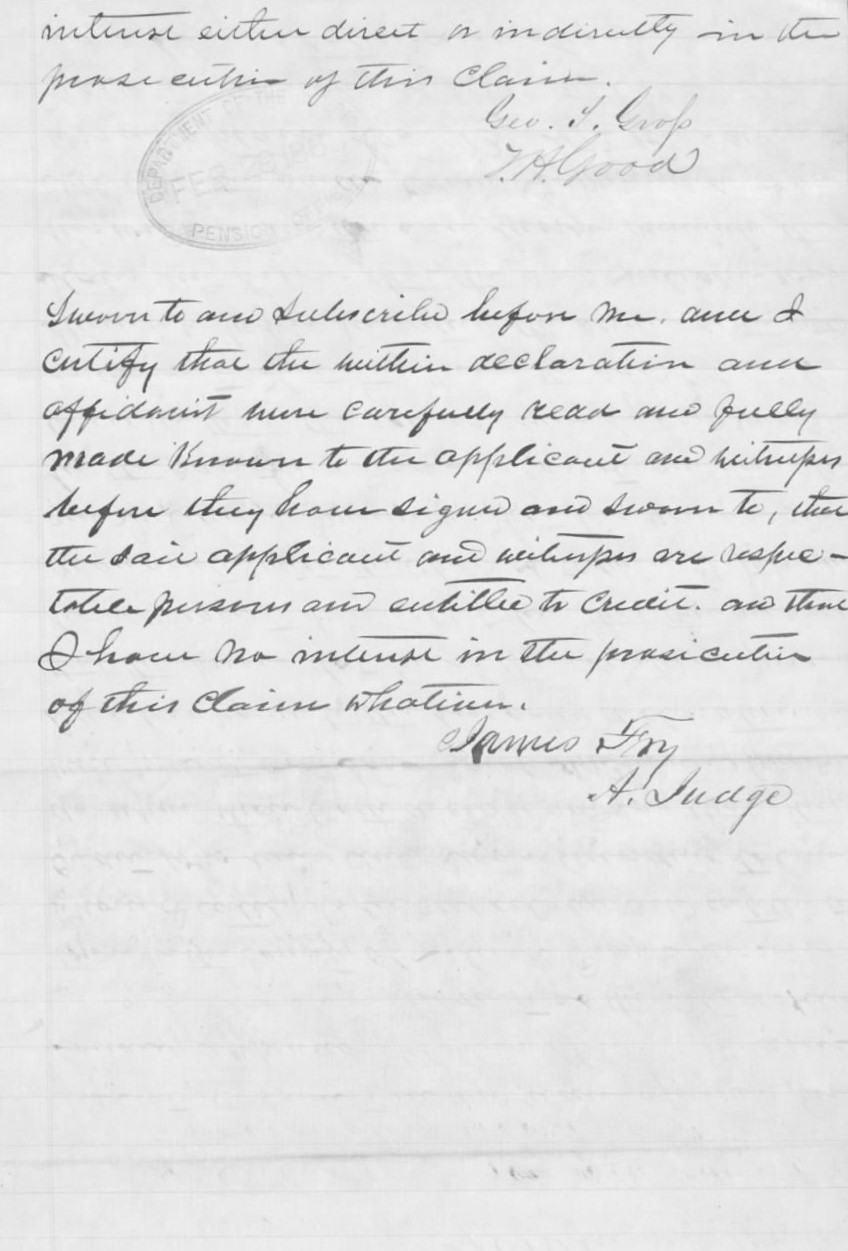 interest either direct or indirectly in the
prosecution of this Claim.
Geo. S. Gross
T. H. Good
DEPARTMENT OF THE
FEB
PENSION OFFICE
Sworn to and Subscribed before me. and I
certify that the within declaration and
affidavit were carefully read and fully
made Known to the applicant and witnesses
before they have signed and sworn to, that
the said applicant and witnesses are respec-
table persons and entitled to Credit. and that
I have no interest in the prosicution
of this Claim whatever.
James Fry
A. Judge